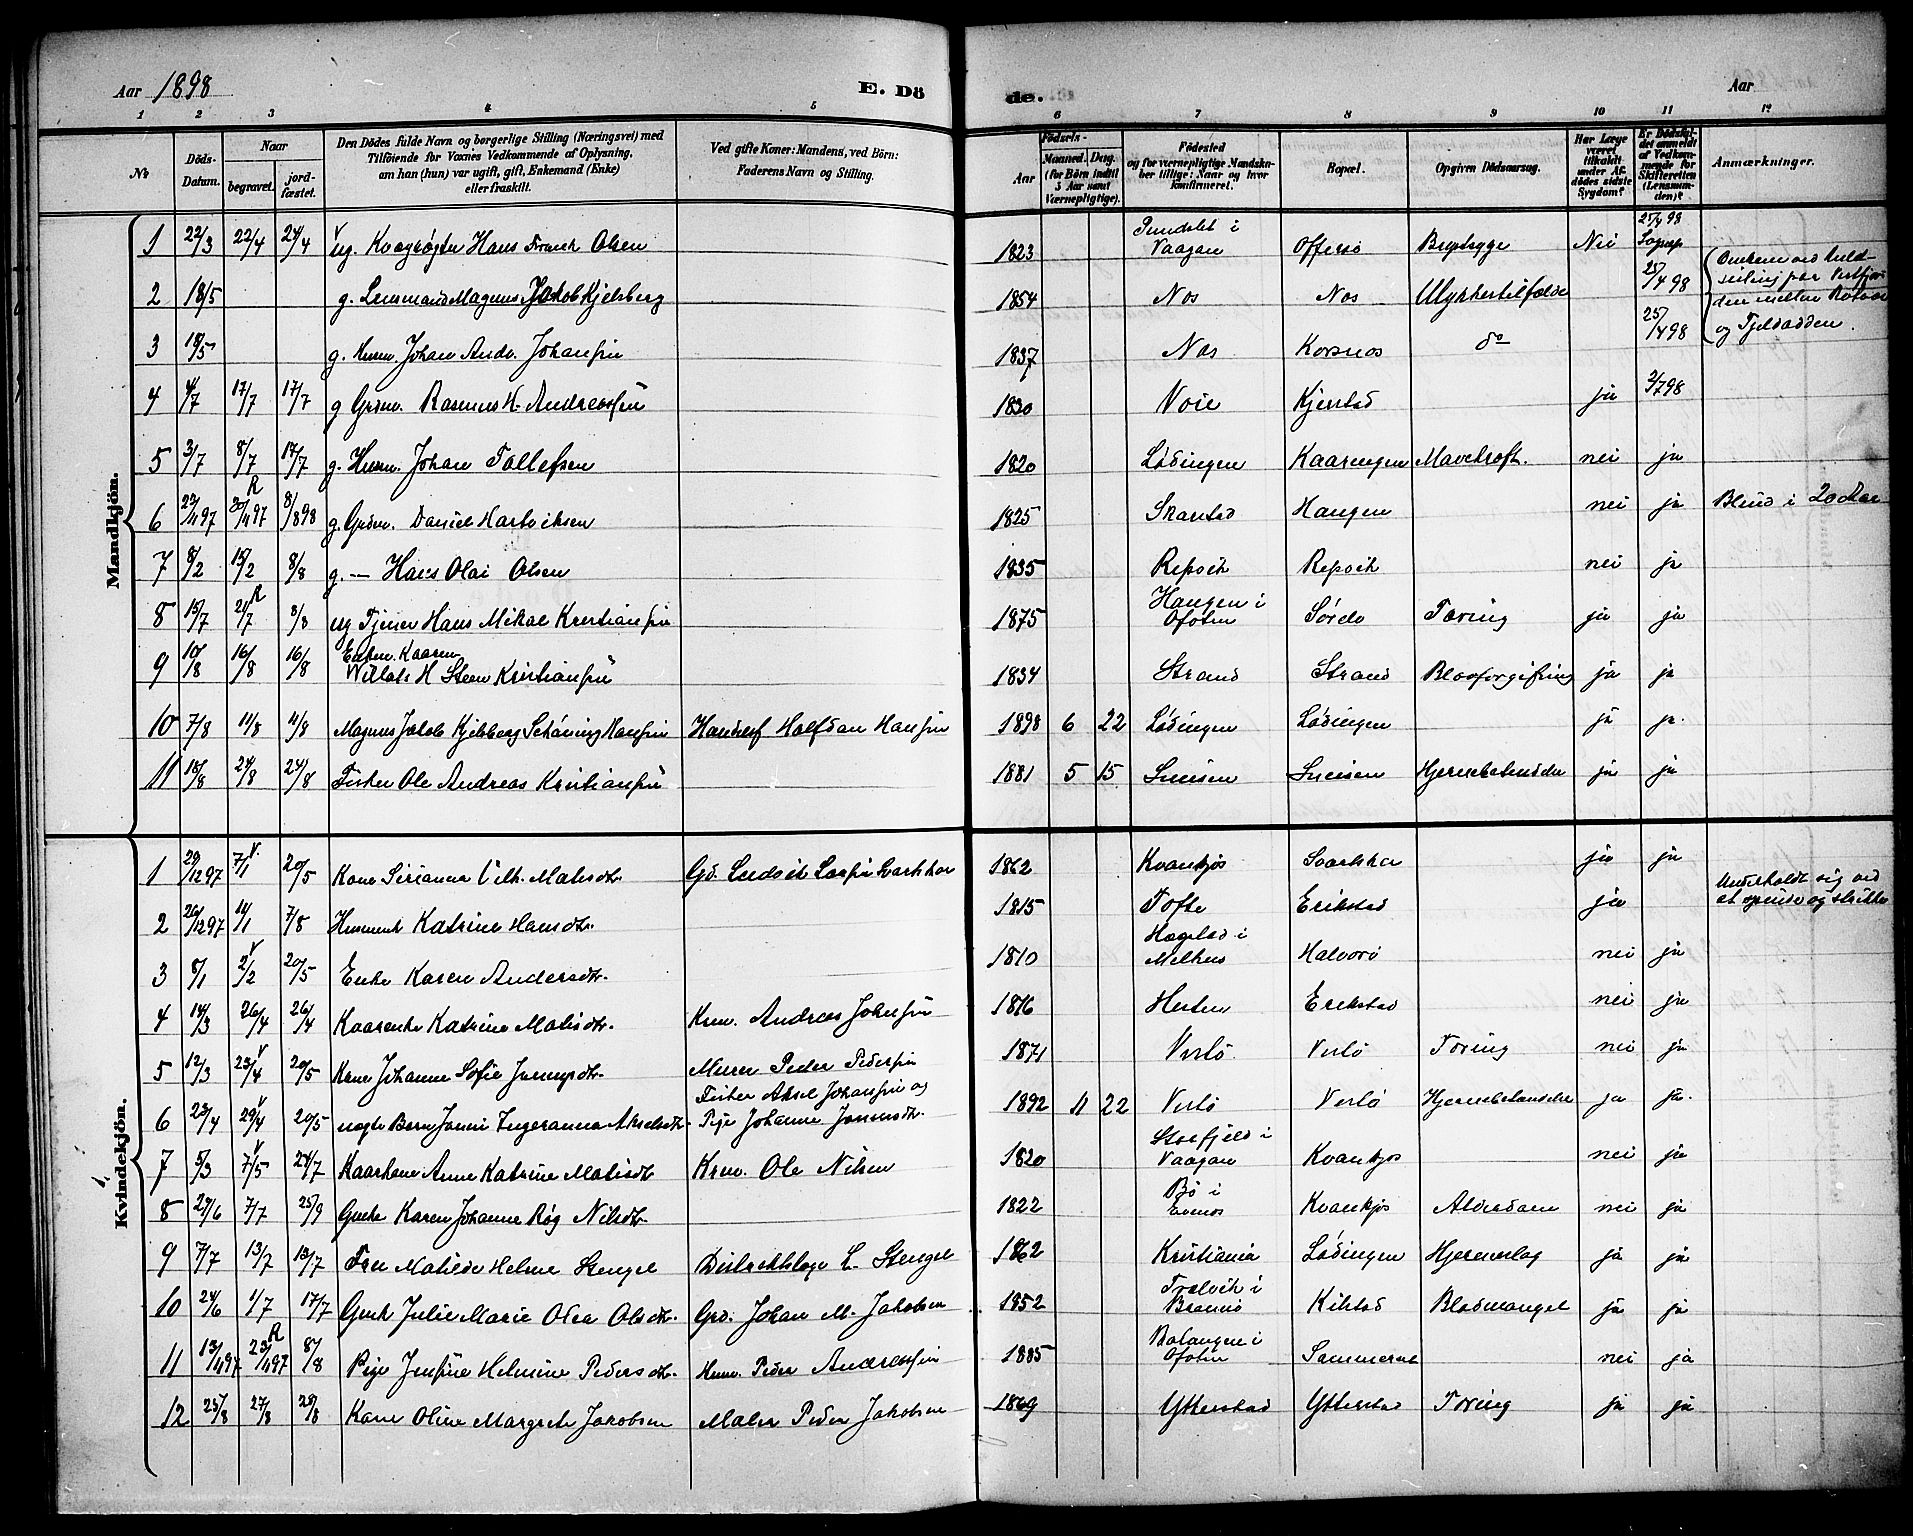 Aar 1898
E. Dö
de.
Aar
1 2 3 4 5
6 7 8 9 10 11 12
No
Döds-Datum.
Naar
begravet.
jord-fæstet.
Den Dödes fulde Navn og borgerlige Stilling (Næringsvei) med
Tilföiende for Voxnes Vedkommende af Oplysning,
om han (hun) var ugift, gift, Enkemand (Enke)
eller fraskilt.
Ved gifte Koner: Mandens, ved Börn:
Faderens Navn og Stilling.
Födsels-
Aar
Maaned. Dag.
(for Börn indtil
5 Aar samt
Værnepligtige).
Födested
og for værnepligtige Mandska-
ber tillige: Naar og hvor
konfirmeret.
Bopæl.
Opgiven Dödsaarsag.
Har Læge
været
tilkaldt
under Af-
dödes sidste
Sygdom?
Er Dödsfal-
det anmeldt
af Vedkom-
mende for
Skifteretten
(Lensman-
den)?
Anmærkninger.
Mandkjön.
1 22/3 22/4 24/4 ug. Hans Olsen 1823 i Vaagan Offersø Brystsyge Nei 25/4 98
2 18/5 g. Lensmand Magnus Jakob Kjelsberg 1854 Nes Nes Ulykkestilfælde 25/4 98
3 18/5 g. Husm. Johan Andr. Johansen 1837 Nes Korsnes do 25/4 98
og Tjeldodden.
4 4/7 17/7 17/7 g Grdm. Rasmus H. Andreassen 1820 Voie Kjerstad ja 2/7 98
5 3/7 8/7 17/7 g. Husm. Johan Tollefsen 1820 Lødingen Kaaringen Mavekræft. nei ja
6 22/11 97 30/11 97 R 8/8 98 g. Grdm. Daniel Hartviksen 1825 Skarstad Haugen nei ja Blind i 20 Aar
7 8/2 15/2 8/8 g. — Hans Olai Olsen 1835 Repvik Repvik nei ja
8 15/7 21/7 R 8/8 ug Tjener Hans Mikal Kristiansen 1875 Haugen i Ofoten Sørdo Tæring ja ja
9 10/8 16/8 16/8 Enkem. H Steen Kristiansen 1834 Strand Strand Blodforgiftning ja ja
10 7/8 11/8 11/8 Magnus Jakob Kjelsberg Schøning Hansen Halfdan Hansen 1898 6 22 Lødingen Lødingen ja ja.
11 18/8 24/8 24/8 Fisker Ole Andreas Kristiansen 1881 5 15 Sneisen Sneisen Hjernebetændelse ja ja
Kvindekjön.
1 29/12 97 7/1 V. 20/5 Kone Vilh. Matisdtr. 1862 Kvankjos Svartskar ja ja
2 26/12 97 11/1 7/8 Katrine Hansdtr. 1815 Tofte Erikstad ja Underholdt sig ved at spinde og strikke
3 8/1 2/2 V 20/5 Enke Karen Andersdtr. 1810 i Melhus Halvorø nei ja
4 14/3 26/4 26/4 Katrine Matisdtr. Krm. Andreas Johnsen 1816 Hesten Erikstad nei ja
5 12/3 23/4 V 20/5 Kone Johanne Sofie Murer Peder Pedersen 1871 Verlø Verlø Tæring nei ja
6 23/4 29/4 V 20/5 uægte Barn Ingeranna Akselsdtr. Fisker Aksel Johansen og Pige Johanne Jensdtr. 1892 11 22 Verlø Verlø Hjernebetændelse ja ja.
7 5/3 7/5 V 24/7 Kaarkone Anne Katrine Matisdtr Krm. Ole Nilsen 1820 Storfjeld i Vaagan Kvankjos nei ja
8 29/6 7/7 25/9 Karen Johanne Røg Nilsdtr. 1822 Bø i Evenes Kvankjos Alderdom nei ja
9 7/7 13/7 13/7 Frue Matilde Helene Stengel Distriktslæge L. Stengel 1862 Kristiania Lødingen Hjerneslag ja ja
10 24/6 1/7 17/7 Julie Marie Olea Olsdtr. Grd. Johan M. Jakobsen 1852 i Kilstad Blodmangel ja ja
11 13/11 97 23/11 97 R 8/8 Pige Jensine Helmine Pedersdtr. Husm. Peder Andreassen 1885 Balangen i Ofoten nei ja
12 23/8 27/8 28/8 Kone Oline Margrete Jakobsen Maler Peder Jakobsen 1869 Ytterstad Ytterstad Tæring ja ja